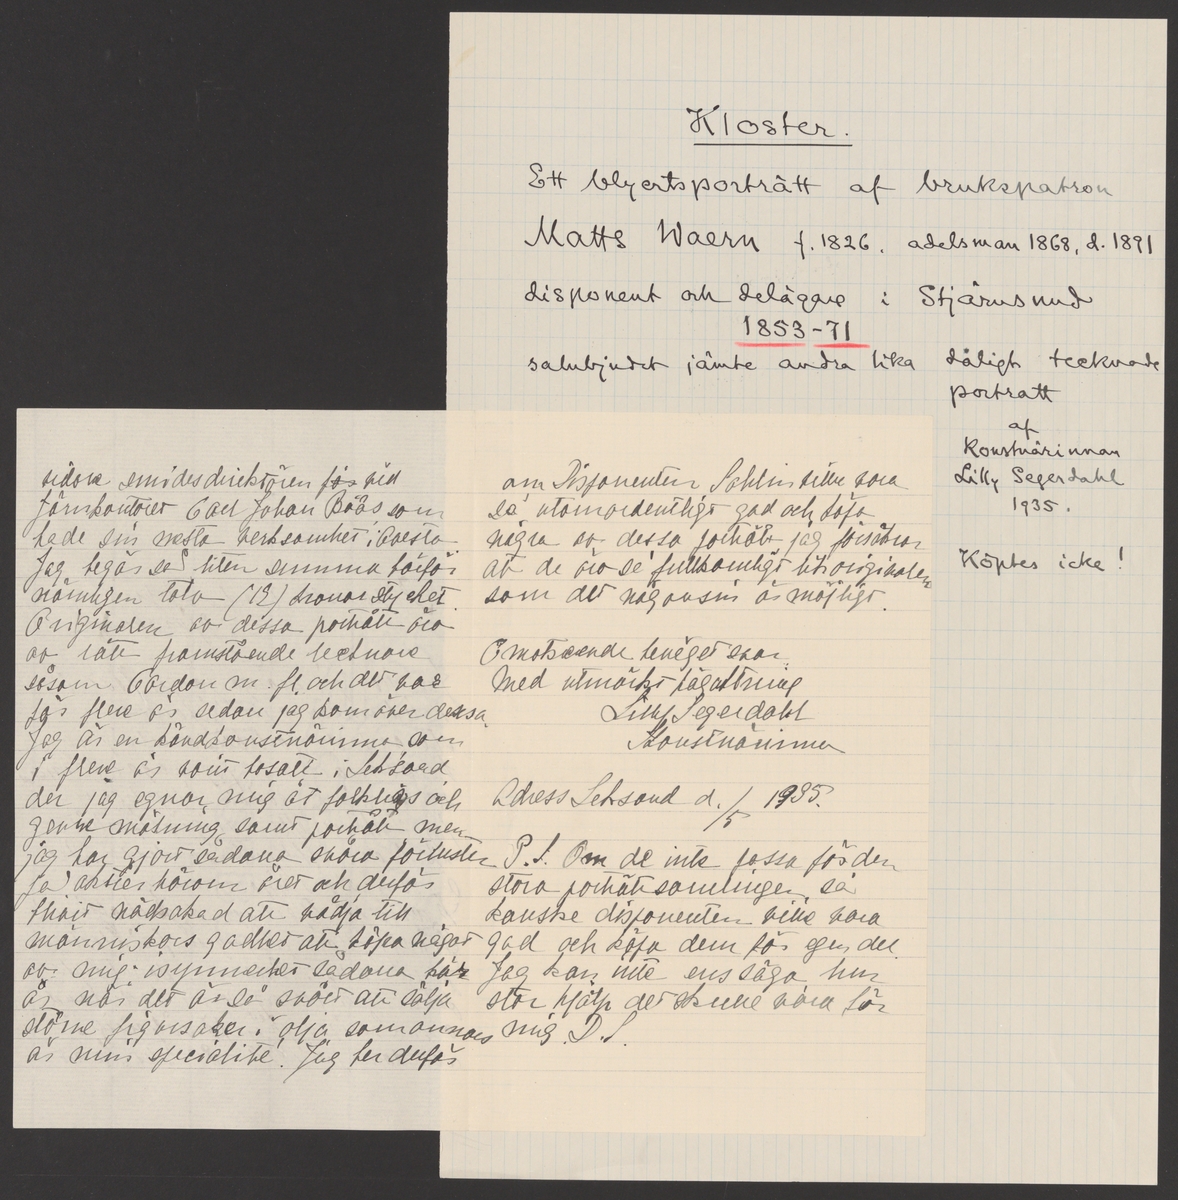 Kloster.
Ett blyertsporträtt af brukspatron
Matts Waern f. 1826. adelsman 1868, d. 1891
disponent och delägare i Stjärnsund
1853-71
salubjudet jämte andra lika dåligt tecknade
porträtt
af
Konstnärinnan
Lilly Segerdahl
1935.
Köptes icke!
sidare smidesdirektören för vid
Järnkontoret Carl Johan Bääs som
hade sin mesta verksamhet i
Jag begär så liten summa därför
nämligen tolv (12) kronor stycket.
Originalen av dessa porträtt äro
av rätt framstående tecknare
såsom Cardon m. fl. och det var
för flere år sedan jag kom över dessa
Jag är en konstnärinna som
i flere år varit bosatt i Leksand
der jag egnar mig åt folklivs och
genre målning samt porträtt men
jag har gjort sådana svåra förluster
på aktier härom året och derför
blivit nödsakad att vädja till
människors godhet att köpa något
av mig isynnerhet sådana här
år när det är så svårt att sälja
större figursaker i olja som annars
är min specialité. Jag ber derför
om Disponenten Sahlin ville vara
så utomordentligt god och köpa
några av dessa porträtt jag försäkrar
att de äro så fullkomligt lik originalen
som det någonsin är möjligt.
Emotseende benäget svar.
Med utmärkt högaktning
Lilly Segerdahl
Konstnärinna
Adress Leksand d. 1/5 1935.
P. S. Om de inte passa för den
stora porträttsamlingen så
kanske disponenten ville vara
god och köpa dem för egen del.
Jag kan inte ens säga hur
stor hjälp det skulle vara för
mig. D. S.